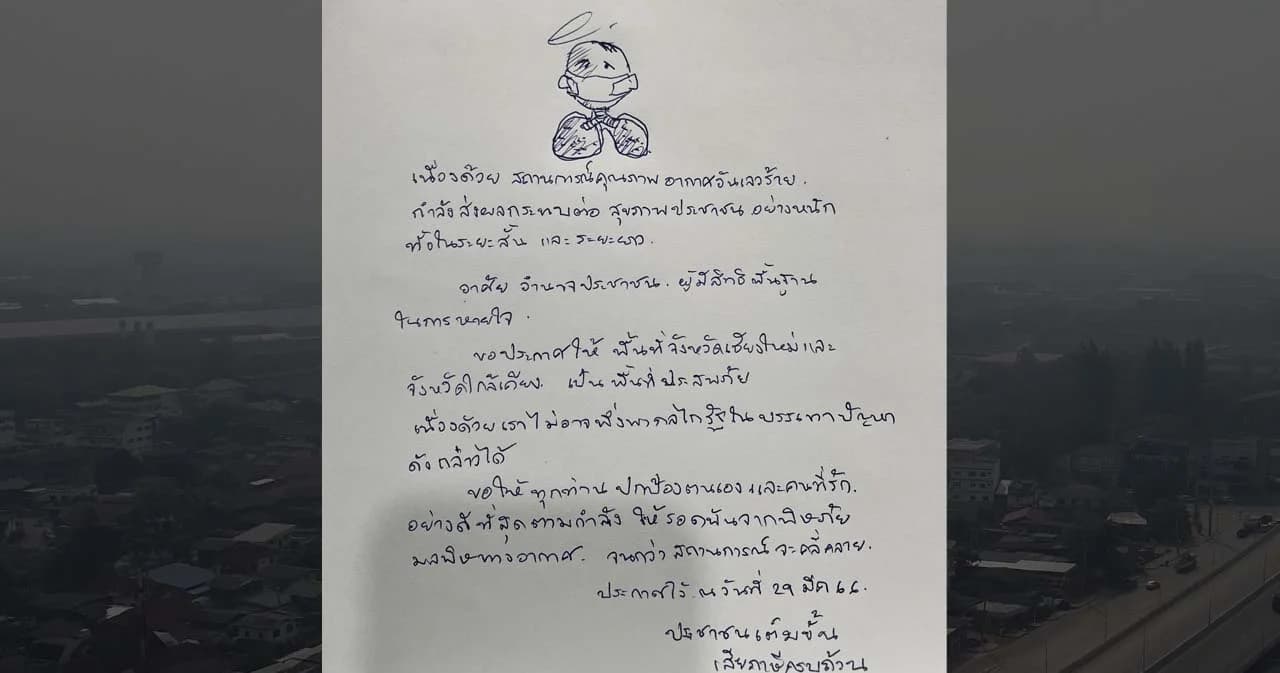 เนื่องด้วย สถานการณ์คุณภาพ อากาศอันเลวร้าย.
กำลังส่งผลกระทบต่อ สุขภาพประชาชน อย่างหนัก
ทั้งในระยะสั้น และ ระยะยาว.
อาศัย อำนาจประชาชน. ผู้มีสิทธิพื้นฐาน
ในการหายใจ.
ขอประกาศให้ พื้นที่จังหวัดเชียงใหม่และ
จังหวัดใกล้เคียง. เป็น พื้นที่ประสพภัย
เนื่องด้วยเราไม่อาจพึ่งพากลไกรัฐในบรรเทาปัญหา
ดังกล่าวได้
ขอให้ทุกท่าน ปกป้องตนเอง และคนที่รัก.
อย่างดีที่สุดตามกำลัง ให้รอดพ้นจากพิษภัย
มลพิษทางอากาศ. จนกว่า สถานการณ์ จะคลี่คลาย.
ประกาศไว้ ณ วันที่ 29 มีค 66.
ประชาชนเต็มขั้น
เสียภาษีครบถ้วน